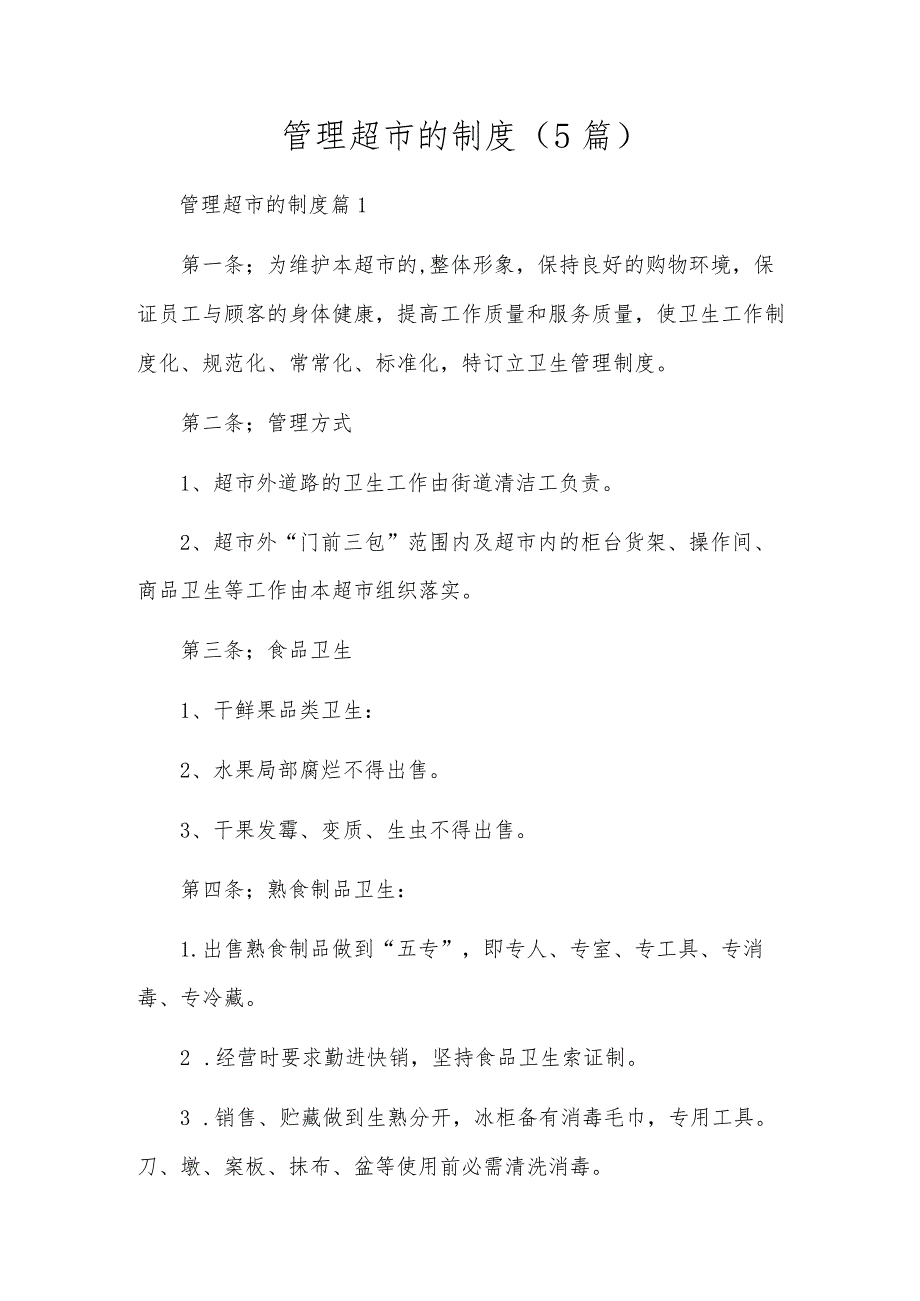 管理超市的制度（5 篇）
管理超市的制度篇 1
第一条；为维护本超市的,整体形象，保持良好的购物环境，保
证员工与顾客的身体健康，提高工作质量和服务质量，使卫生工作制
度化、规范化、常常化、标准化，特订立卫生管理制度。
第二条；管理方式
1、超市外道路的卫生工作由街道清洁工负责。
2、超市外“门前三包”范围内及超市内的柜台货架、操作间、
商品卫生等工作由本超市组织落实。
第三条；食品卫生
1、干鲜果品类卫生：
2、水果局部腐烂不得出售。
3、干果发霉、变质、生虫不得出售。
第四条；熟食制品卫生：
1.出售熟食制品做到“五专”，即专人、专室、专工具、专消
毒、专冷藏。
2 .经营时要求勤进快销，坚持食品卫生索证制。
3 .销售、贮藏做到生熟分开，冰柜备有消毒毛巾，专用工具。
刀、墩、案板、抹布、盆等使用前必需清洗消毒。